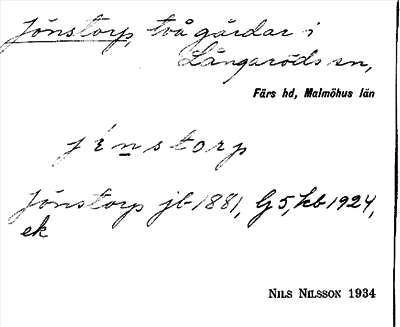 Jönstorp, två gårdar i
Långaröds sn,
Färs hd, Malmöhus län
jönstorp
Jönstorp jb 1881, G5, kb 1924,
ek
NILS NILSSON 1934